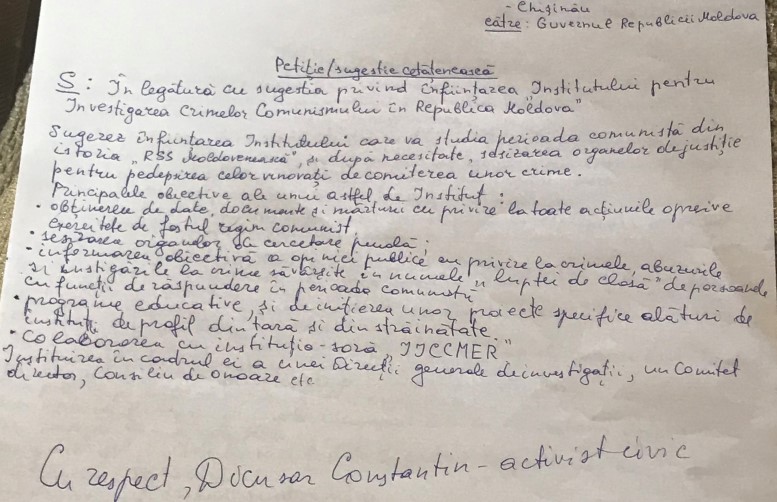 - Chișinău
către: Guvernul Republicii Moldova
Petiție/sugestie cetățenească
S: În legătură cu sugestia privind înființarea „Institutului pentru
Investigarea Crimelor Comunismului în Republica Moldova"
Sugerez înființarea Institutului care va studia perioada comunistă din
istoria „RSS Moldovenească", și după necesitate, sesizarea organelor de justiție
pentru pedepsirea celor vinovați de comiterea unor crime.
Principalele obiective ale unui astfel de Institut:
• obținerea de date, documente și mărturii cu privire la toate acțiunile opresive
exercitate de fostul regim comunist
• sesizarea organelor de cercetare penală;
• informarea obiectivă a opiniei publice cu privire la crimele, abuzurile
și instigările la crime săvârșite în numele „luptei de clasă" de persoanele
cu funcții de răspundere în perioada comunistă
• programe educative, și de inițierea unor proiecte specifice alături de
instituții de profil din țară și din străinătate.
• Colaborarea cu instituția-soră „IICCMER"
Instituirea în cadrul ei a unei Direcții generale de investigații, un Comitet
director, Consiliu de onoare etc
Cu respect, Docusar Constantin - activist civic